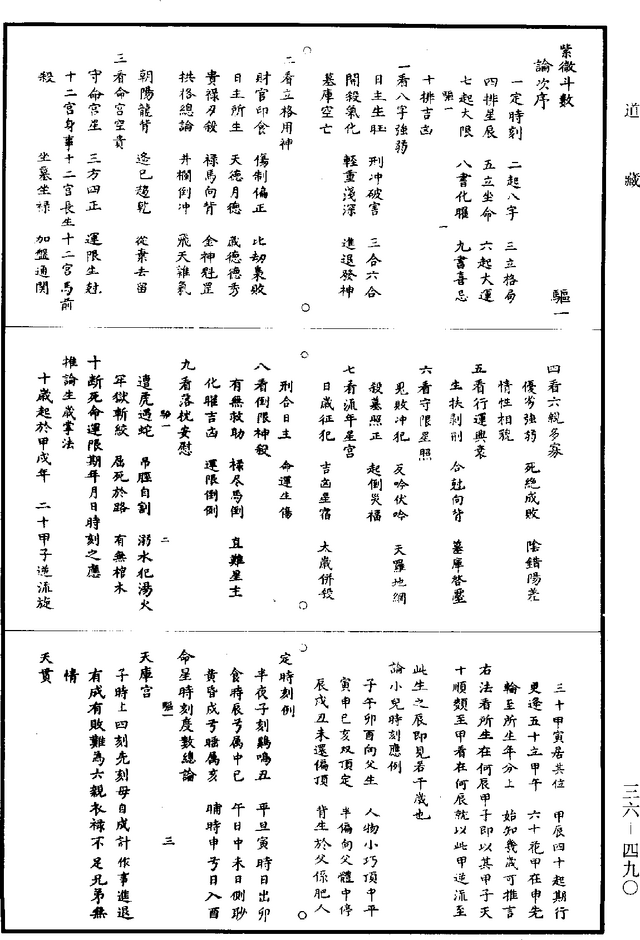 道藏
三六－四九〇
紫微斗數 驅一
論次序
一定時刻 二起八字 三立格局
四排星辰 五立坐命 六起大運
七起大限 八書化曜 九書喜忌
驅一 一
十排吉凶
一看八字強弱
日主生旺 刑冲破害 三合六合
開殺氣化 輕重淺深 進退發神
墓庫空亡
二看立格用神
財官印食 傷制偏正 比劫裹敗
日主所生 天德月德 歲德德秀
貴祿夕殺 祿馬向背 金神魁罡
拱格總論 井欄倒冲 飛天雜氣
朝陽龍背 遙巳趨乾 從棄去留
三看命宮空貴
守命宮星 三方四正 運限生尅
十二宮身事十二宮長生十二宮馬前
殺 坐墓坐祿 加盤通關
四看六親多寡
優劣強弱 死絕成敗 陰錯陽差
情性相貌
五看行運興衰
生扶剥刑 合尅向背 墓庫啓壓
六看守限星照
見敗冲犯 反吟伏吟 天羅地網
殺墓照正 起倒災福
七看流年星宮
日歲征犯 吉凶星宿 太歲併殺
刑合日主 命運生傷
八看倒限神殺
有無救助 祿尽馬倒 直難星主
化曜吉凶 運限倒倒
九看落枕安慰
遭虎遇蛇 吊脛自割 溺水犯湯火
驅一 二
牢獄斬絞 屈死於路 有無棺木
十斷死命運限期年月日時刻之應
推論生歲掌法
十歲起於甲戌年 二十甲子逆流旋
三十甲寅居其位 甲辰四十起期行
更逢五十立甲午 六十花甲在申先
輪至所生年分上 始知幾歲可推言
右法看所生在何辰甲子即以其甲子天
十順類至甲看在何辰就以此甲逆流至
此生之辰即見若干歲也
論小兒時刻應例
子午卯酉向父生 人物小巧頂中平
寅申巳亥双頂定 半偏向父體中停
辰戌丑未還偏頂 背生於父保肥人
定時刻例
半夜子刻鷄鳴丑 平旦寅時日出卯
食時辰兮属中巳 午日中未日側眇
黄昏戍兮暗属亥 晡時申兮日入酉
命星時刻度數總論
驅一 三
天庫宮
子時上四刻先刻母自成計作事進退
有成有敗難為六親衣祿不足兄弟無
情
天貫